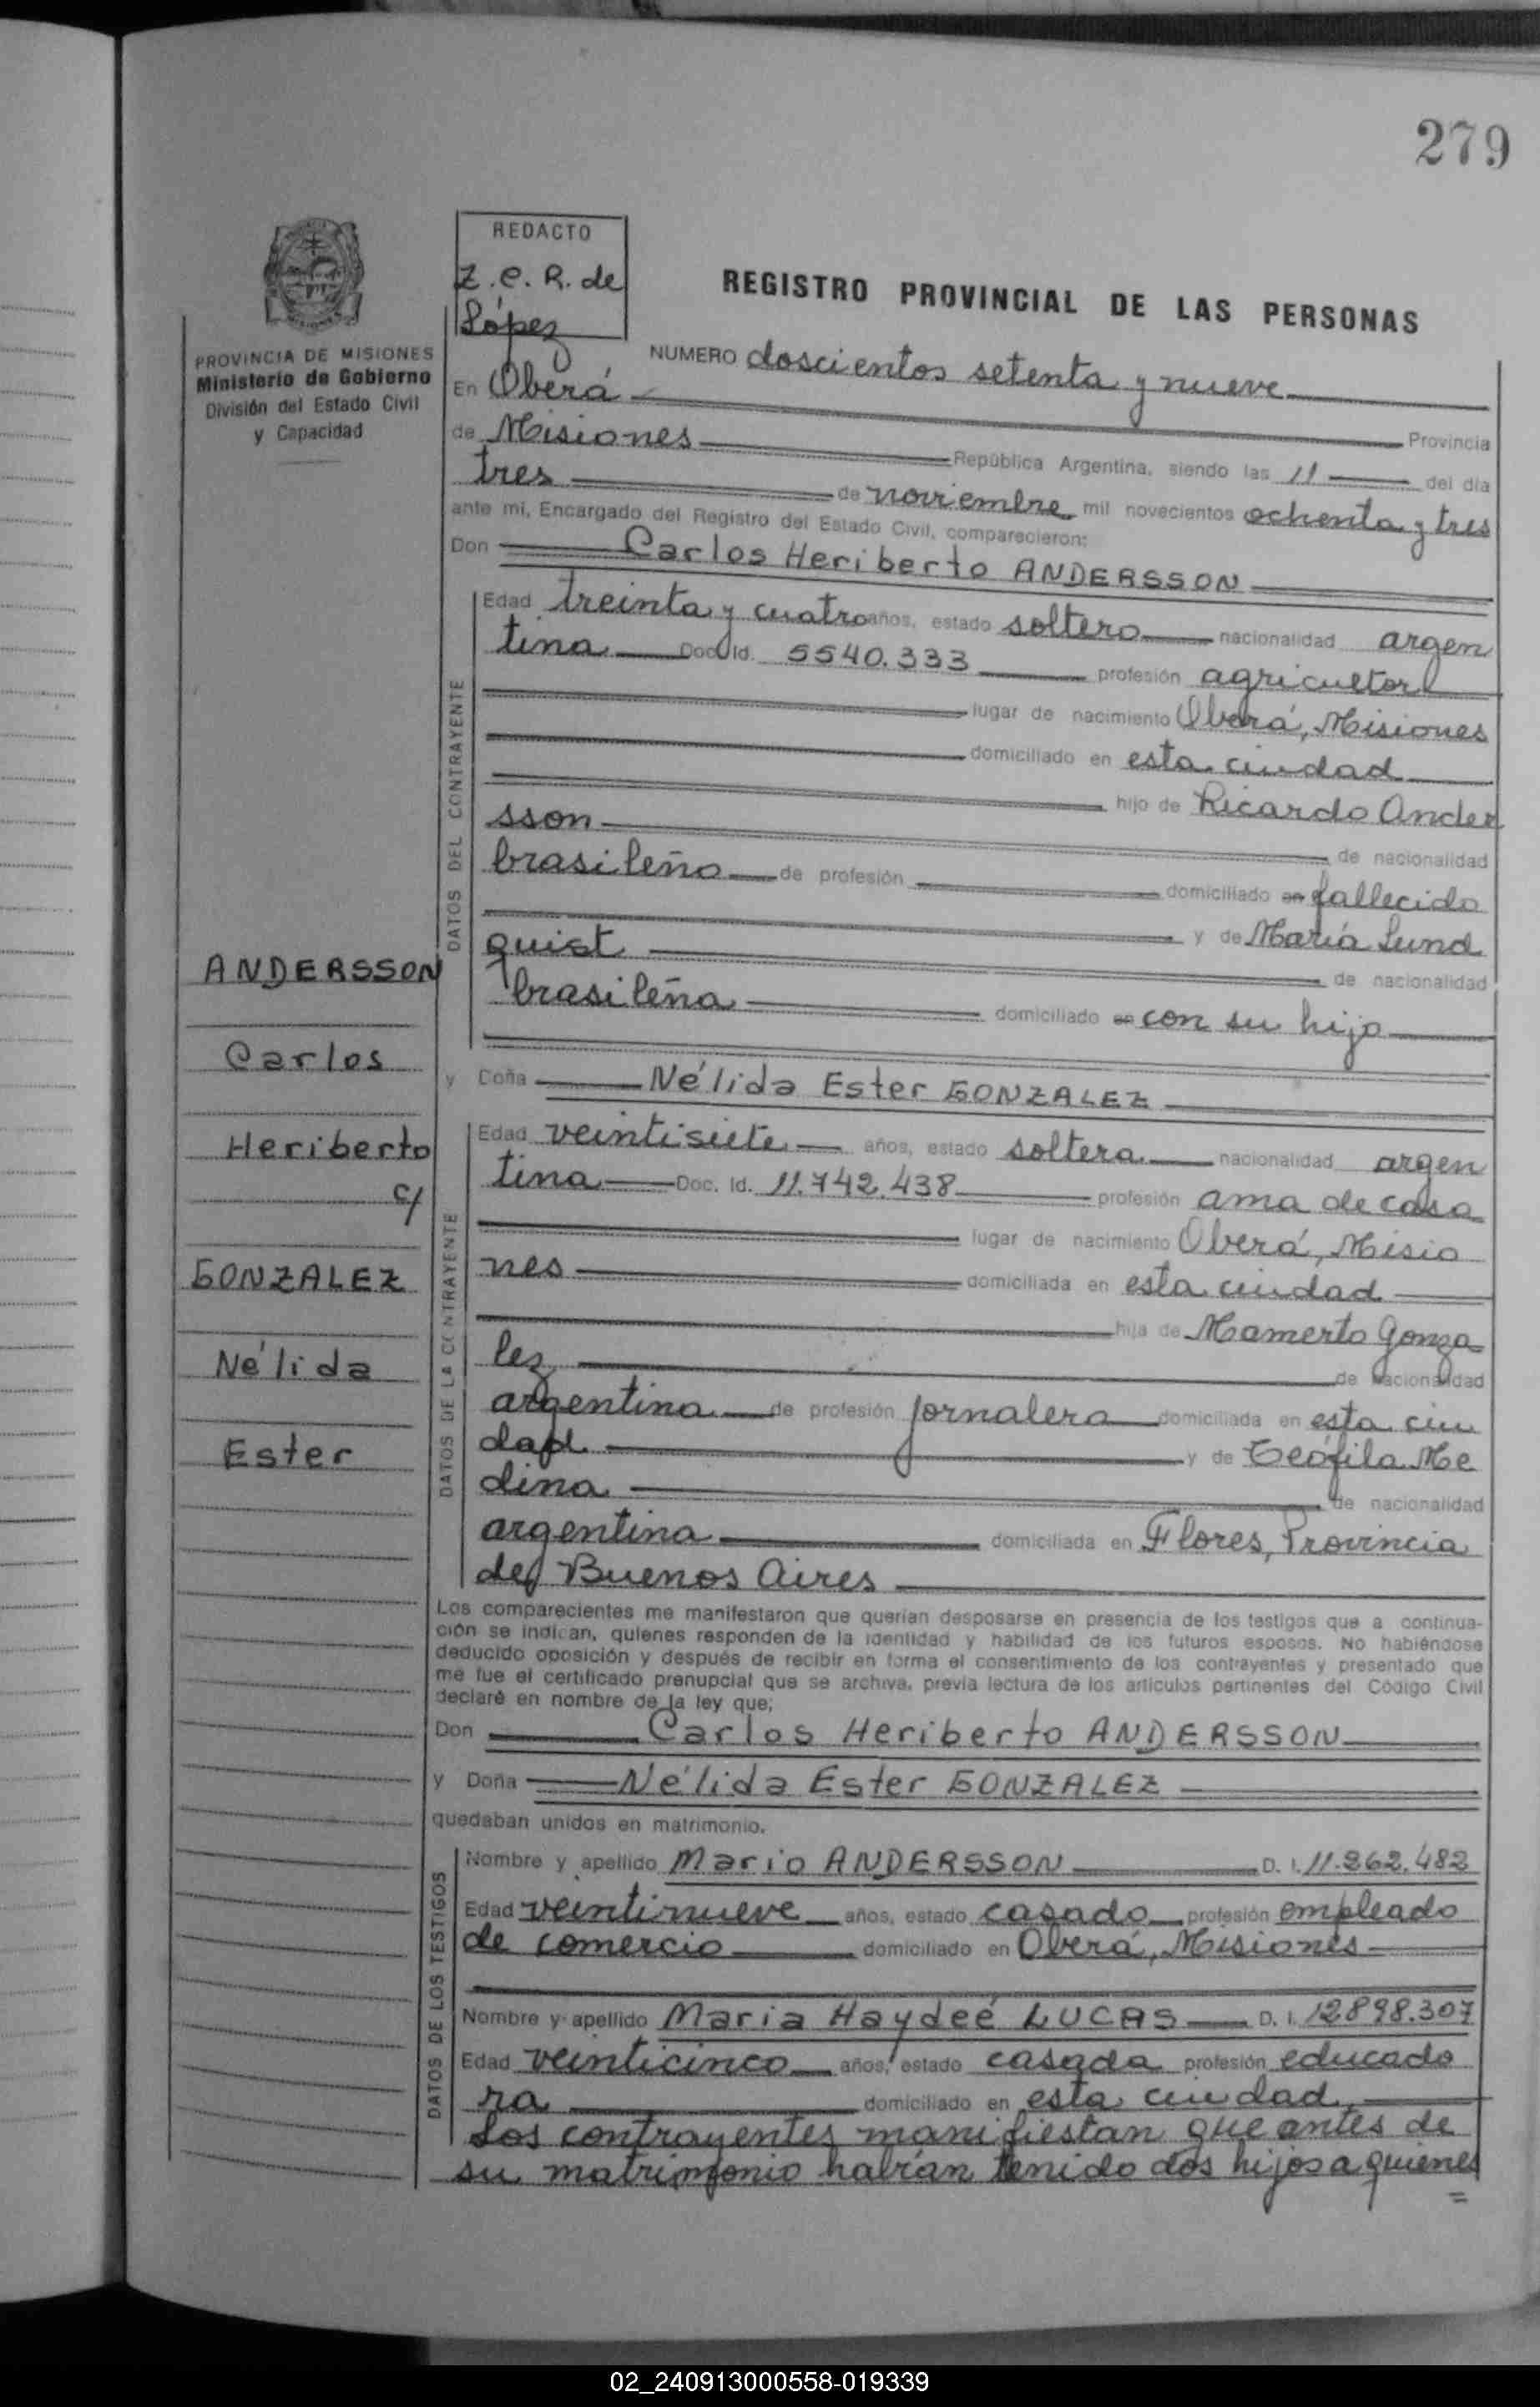 279
REDACTO
Z. C. R. de
López
REGISTRO PROVINCIAL DE LAS PERSONAS
PROVINCIA DE MISIONES
Ministerio de Gobierno
División del Estado Civil
y Capacidad
NUMERO doscientos setenta y nueve
En Oberá
Provincia
de Misiones República Argentina, siendo las 11 del día
tres de noviembre mil novecientos ochenta y tres
ante mi, Encargado del Registro del Estado Civil, comparecieron:
Don Carlos Heriberto ANDERSSON
DATOS DEL CONTRAYENTE
Edad treinta y cuatro años, estado soltero nacionalidad argen
tina Doc. Id. 5540.333 profesión agricultor
lugar de nacimiento Oberá, Misiones
domiciliado en esta ciudad
hijo de Ricardo Ander
sson de nacionalidad
brasileño de profesión domiciliado en fallecido
y de María Lund
quist de nacionalidad
brasileña domiciliado en con su hijo
y Doña Nélida Ester GONZALEZ
ANDERSSON
Carlos
Heriberto
c/
GONZALEZ
Nélida
Ester
DATOS DE LA CONTRAYENTE
Edad veintisiete años, estado soltera nacionalidad argen
tina Doc. Id. 11.742.438 profesión ama de casa
lugar de nacimiento Oberá, Misio
nes domiciliada en esta ciudad
hija de Mamerto Gonza
lez de nacionalidad
argentina de profesión jornalero domiciliada en esta ciu
dad y de Teófila Me
dina de nacionalidad
argentina domiciliada en Flores, Provincia
de Buenos Aires
Los comparecientes me manifestaron que querían desposarse en presencia de los testigos que a continua-
ción se indican, quienes responden de la identidad y habilidad de los futuros esposos. No habiéndose
deducido oposición y después de recibir en forma el consentimiento de los contrayentes y presentado que
me fue el certificado prenupcial que se archiva, previa lectura de los artículos pertinentes del Código Civil
declaré en nombre de la ley que;
Don Carlos Heriberto ANDERSSON
y Doña Nélida Ester GONZALEZ
quedaban unidos en matrimonio.
DATOS DE LOS TESTIGOS
Nombre y apellido Mario ANDERSSON D. I. 11.262.482
Edad veintinueve años, estado casado profesión empleado
de comercio domiciliado en Oberá, Misiones
Nombre y apellido Maria Haydeé LUCAS D. I. 12898.307
Edad veinticinco años, estado casada profesión educado
ra domiciliado en esta ciudad.
Los contrayentes manifiestan que antes de
su matrimonio habían tenido dos hijos a quienes
=
02_240913000558-019339